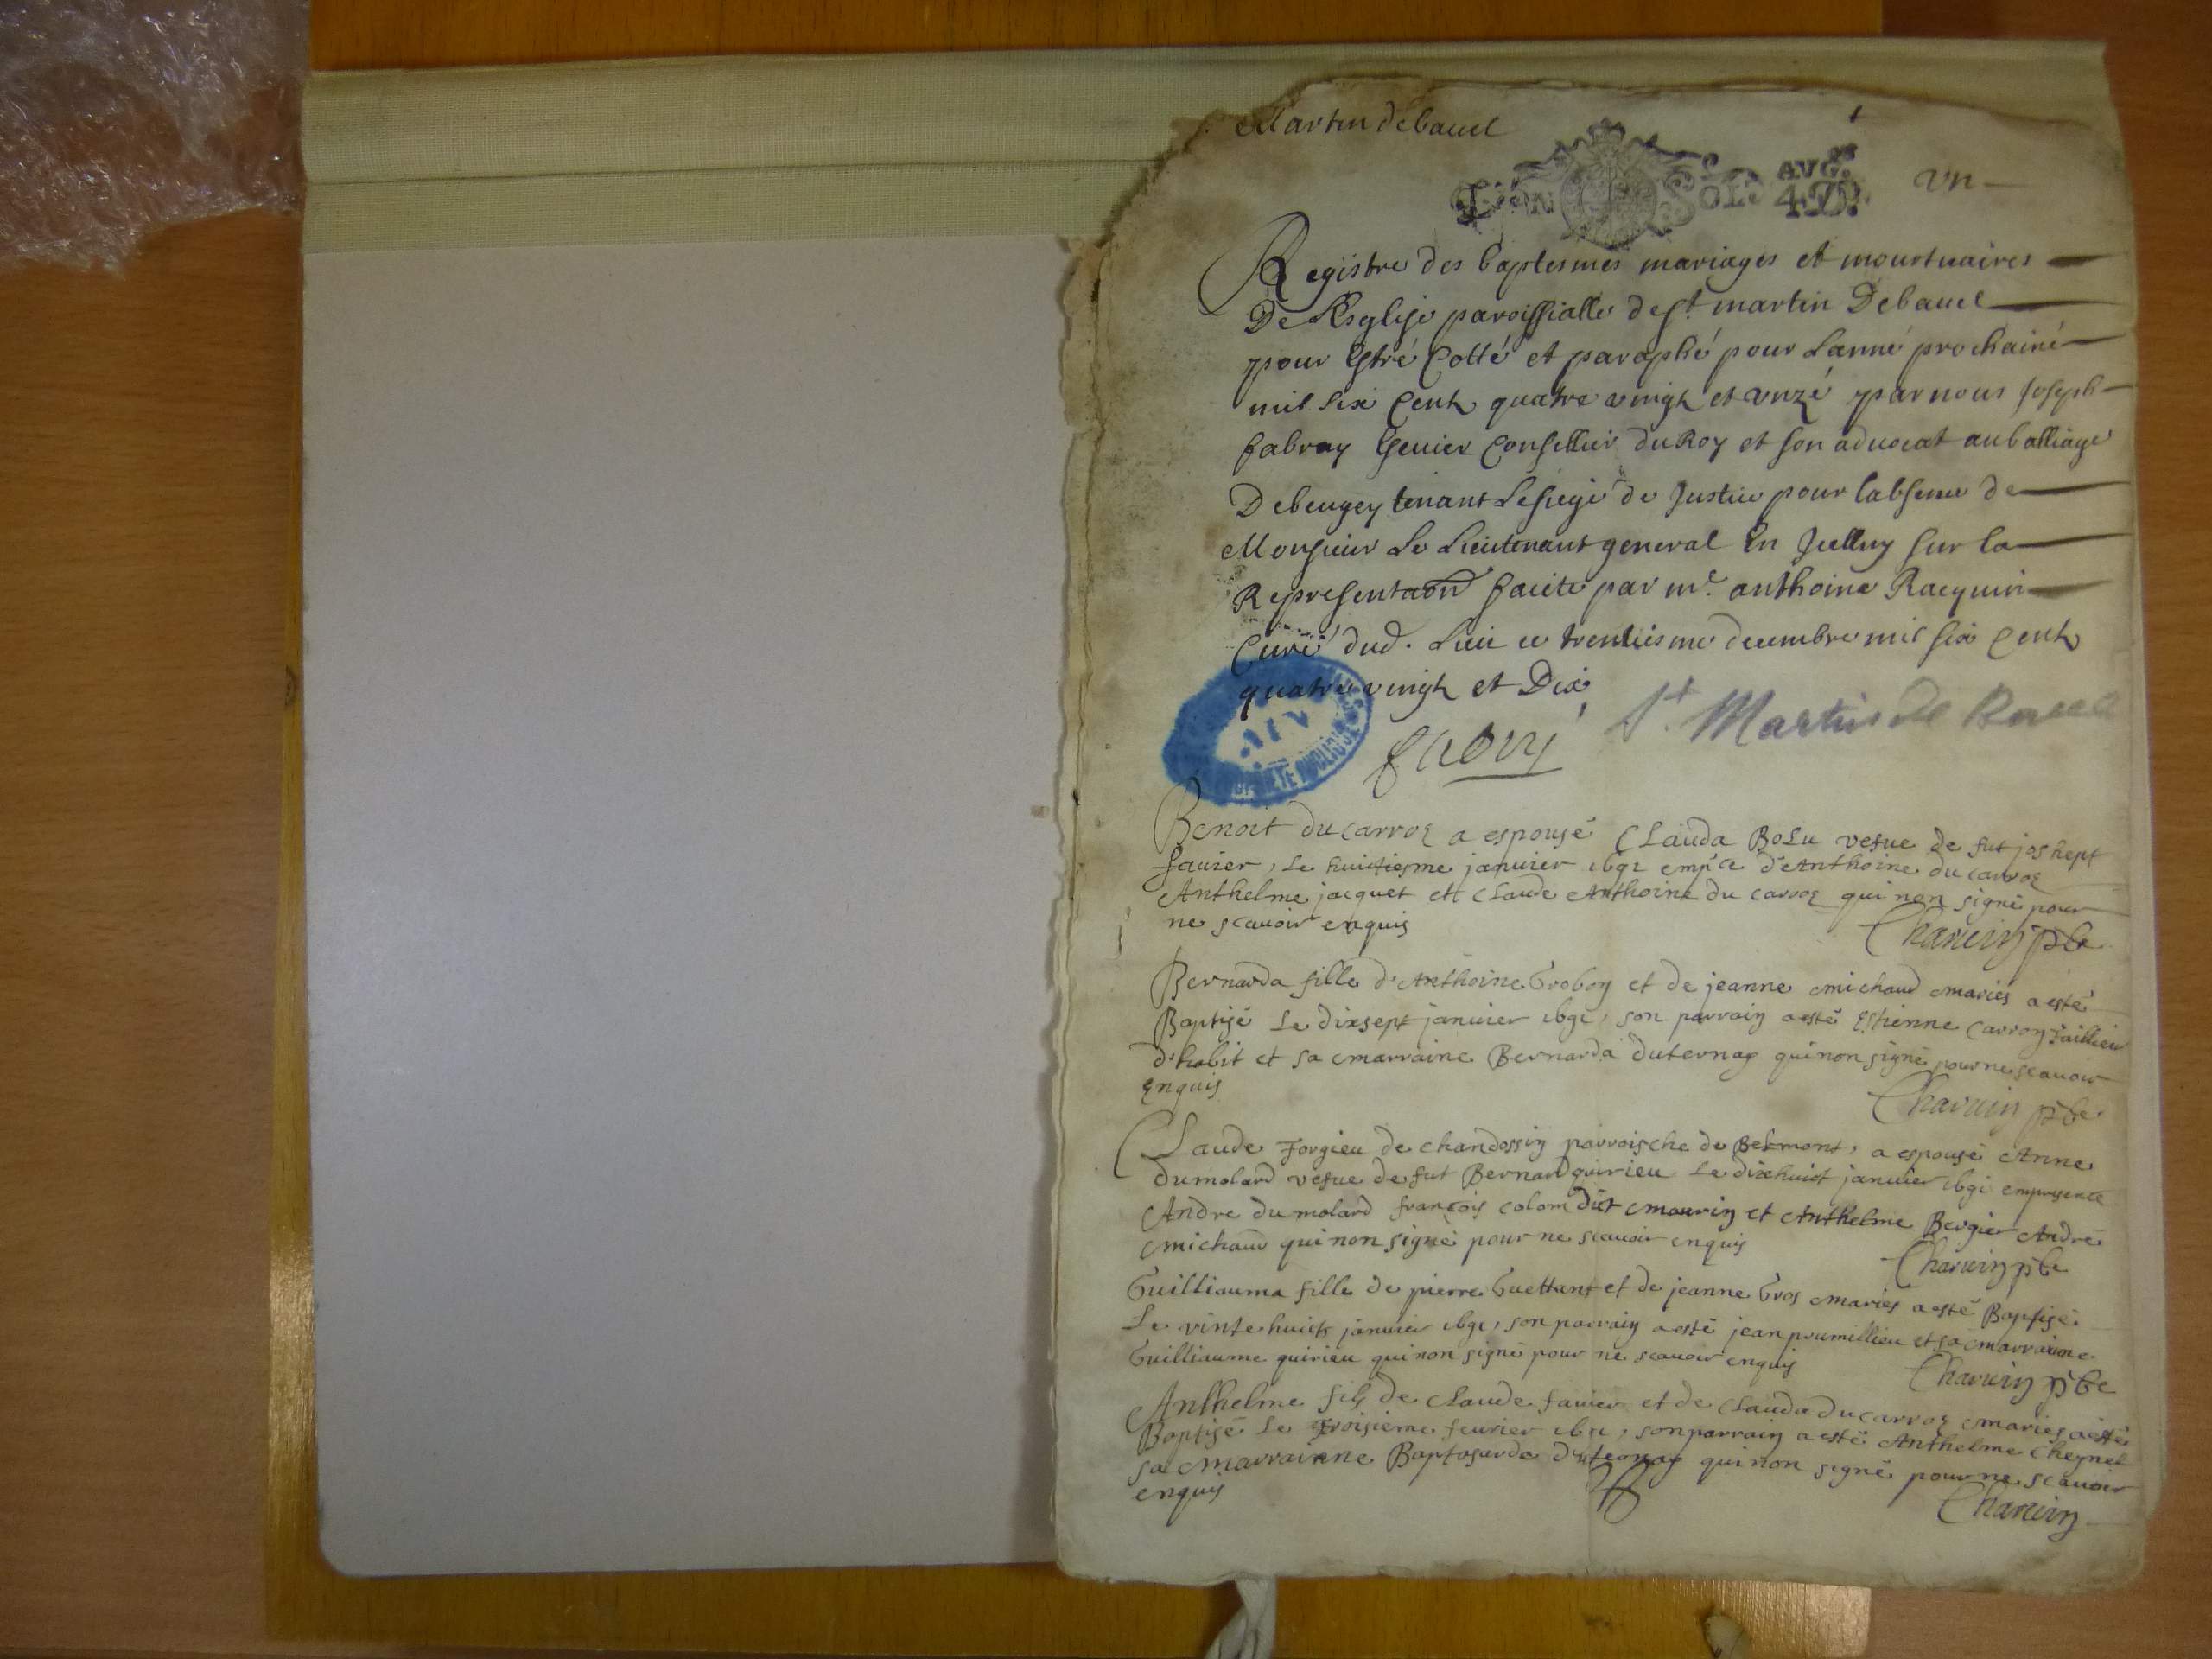 Martin de bauel
AVG. 4D.
vn
Registre des baptesmes mariages et mourtuaires
De Lesglise paroissialle de St martin Debauel
pour Estré Cotté et paraphé pour Lanné prochainé
mil six Cent quatre vingt et vnzé par nous Joseph
fabry Conseillier du Roy et son aduocat au balliage
De beugey tenant Le siege de Justice pour labsence de
Monsieur Le Lieutenant general En Jcelluy sur la
Representaon faicte par mre. anthoine Racquin
Curé dud. Lieu ce trentiesme decembre mil six Cent
quatre vingt et Dix
St. Martin de Bavel
fabry
Benoit du carroz a espousé Clauda Bolu vefue de fut joshept
fauier, Le huictiesme januier 1691 empce d'Anthoine du carroz
Anthelme jacquet et Claude Anthoine du carroz qui non signé pour
ne scauoir enquis
Charuin pbre
Bernarda fille d'Anthoine Groboz et de jeanne michaud mariés a esté
Baptisé Le dixsept januier 1691, son parrain a esté Estienne Carroz taillieur
d'habit et sa marraine Bernarda duternay qui non signé pour ne scauoir
Enquis
Charuin pbre
Claude Forgieu de chandossin parroische de Belmont, a espousé Anne
dumolard vefue de fut Bernard quirieu Le dixhuict januier 1691 empresence
Andre du molard françois colom dict maurin et Anthelme Bergier André
michaud qui non signé pour ne scauoir enquis
Charuin pbre
Guilliauma fille de pierre Guettant et de jeanne Gros mariés a esté Baptisé
Le vinte huict januier 1691, son parrain a esté jean prumillieu et sa marraine
Guilliaume quirieu qui non signé pour ne scauoir enquis
Charuin pbre
Anthelme fils de Claude fauier et de Clauda du carroz mariés a esté
Baptisé Le troisieme feurier 1691, son parrain a esté Anthelme Cheynel
sa marrainne Baptosarde duternay qui non signé pour ne scauoir
enquis
Charuin